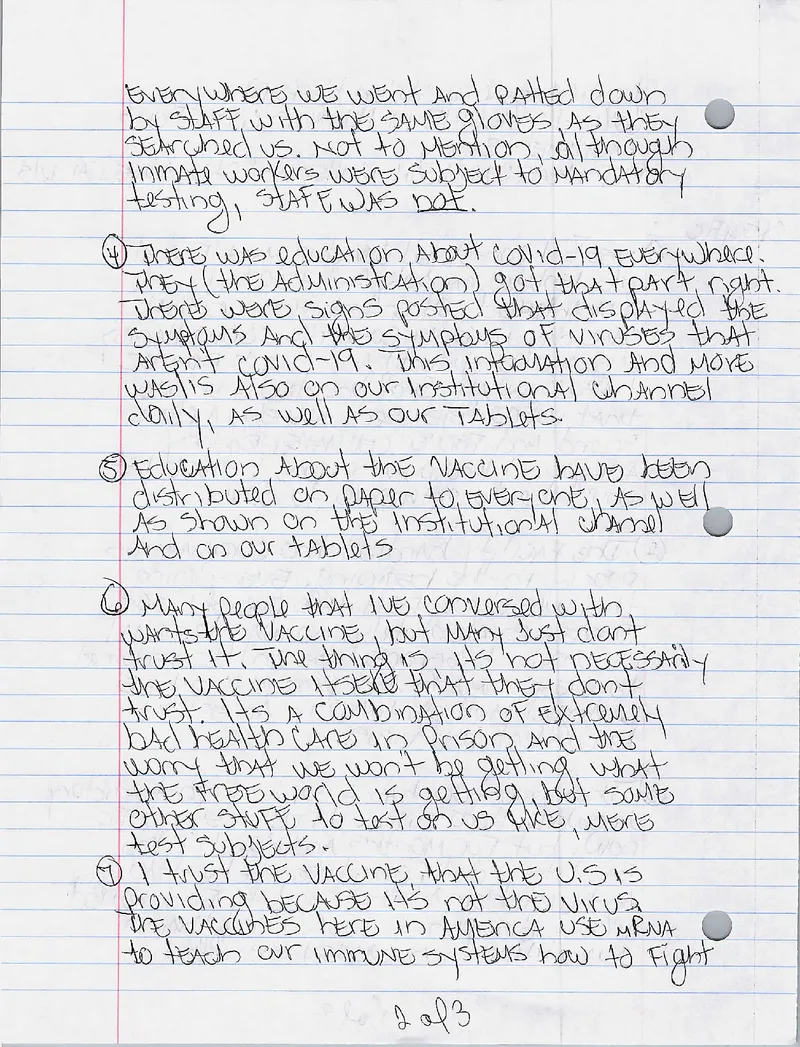 EVERYWHERE WE WENT AND PATTED down
by STAFF with the SAME gloves AS they
SEARched us. Not to MENtion, although
INMATE workers WERE subject to MANDATORY
testing, STAFF WAS not.
④ THERE WAS education About COVID-19 EVERYwhere.
THEY (the Administration) got that part right.
THERE WERE signs posted that displayed the
symptoms And the symptoms OF VIRUSES that
AREN'T COVID-19. This information AND MORE
was/is Also on our Institutional Channel
daily, AS well AS our TAblets.
⑤ Education About the VACCINE have been
distributed on PAPER to EVERYONE, AS WEll
AS shown on the Institutional channel
And on our tAblets
⑥ MANY people that I'VE conversed with
wants the VACCINE, but MANY Just don't
trust it. The thing is its not NECESSARily
the VACCINE itself that they don't
trust. Its A combination OF Extremely
bad health CARE in Prison AND the
worry that we won't be getting what
the FREE world is getting, but SOME
other STUFF to test on us LIKE, MERE
test subjects.
⑦ I trust the VACCINE that the U.S is
providing because it's not the virus.
The VACCINES here in AMERICA USE mRNA
to teach our IMMUNE SYSTEMS how to Fight
2 of 3